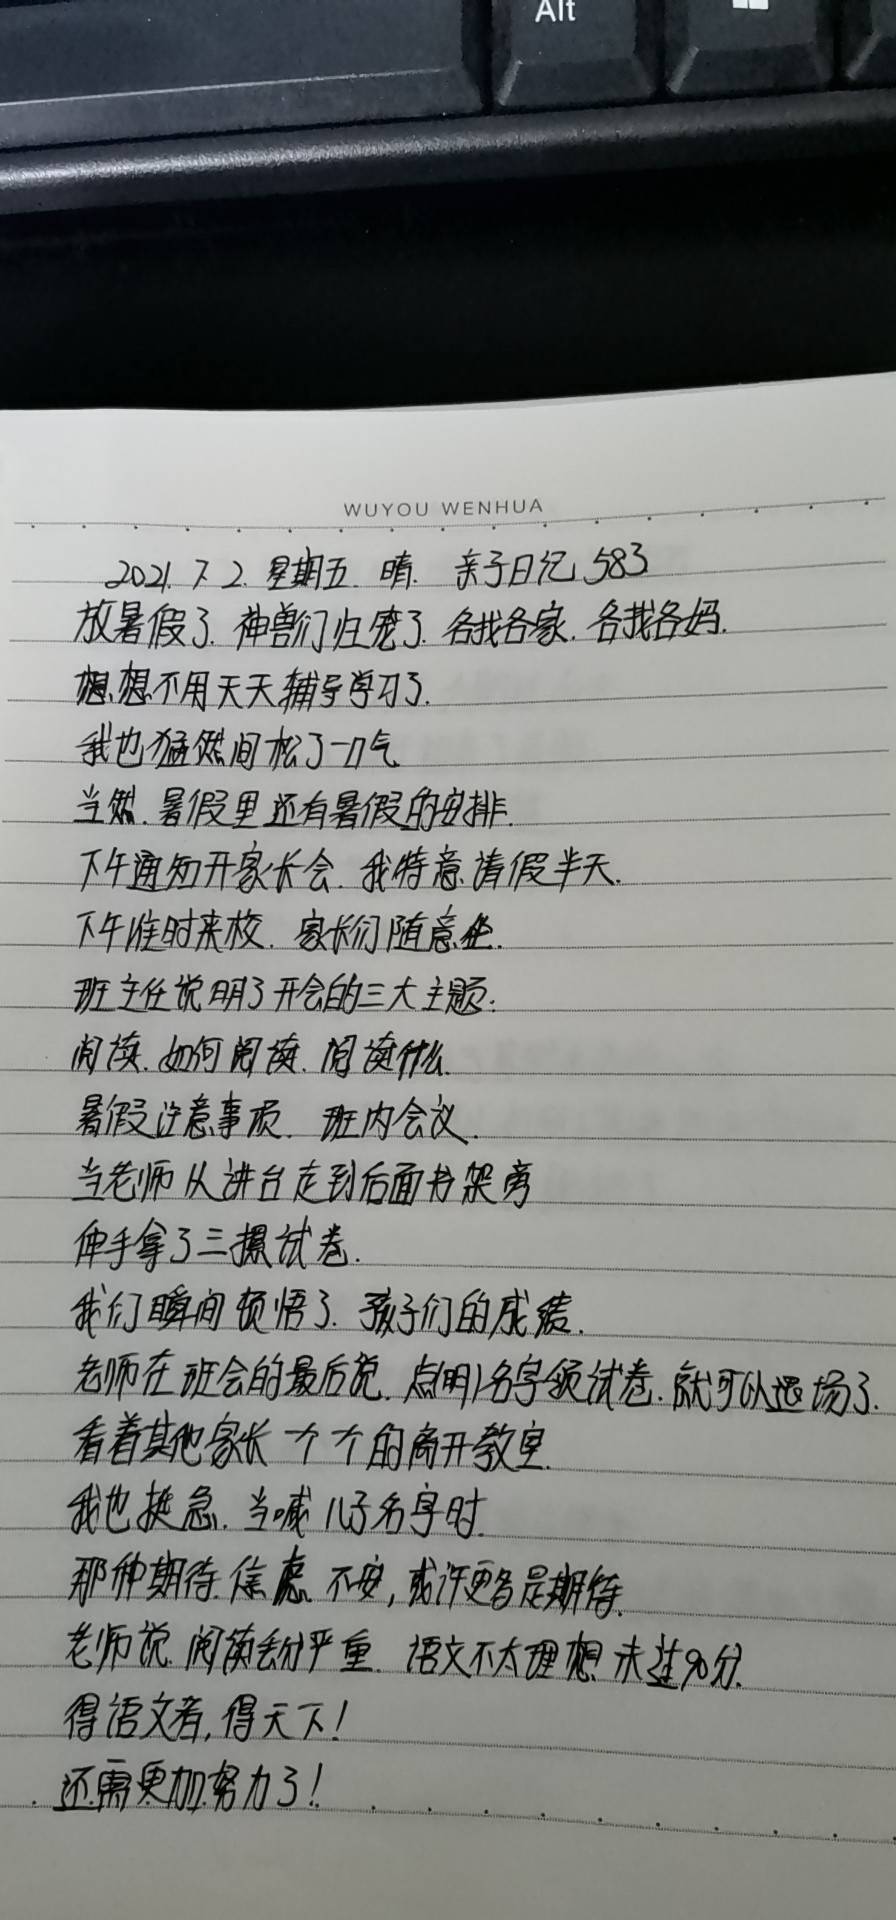 Alt
WUYOU WENHUA
2021.7.2. 星期五. 晴. 亲子日记583
放暑假了. 神兽们归笼了. 各找各家. 各找各妈.
想想不用天天辅导学习了.
我也猛然间松了一口气
当然. 暑假里还有暑假的安排.
下午通知开家长会. 我特意请假半天.
下午准时来校. 家长们随意坐.
班主任说明了开会的三大主题:
阅读. 如何阅读. 阅读什么.
暑假注意事项. 班内会议.
当老师从讲台走到后面书架旁
伸手拿了三摞试卷.
我们瞬间顿悟了. 孩子们的成绩.
老师在班会的最后说. 点明1名字领试卷. 就可以退场了.
看着其他家长一个个的离开教室.
我也挺急. 当喊儿子名字时
那种期待. 焦虑. 不安, 或许更多是期待.
老师说. 阅读丢分严重. 语文不太理想 未过90分.
得语文者, 得天下!
还需更加努力了!